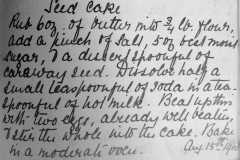 Seed Cake
Rub 6oz. of butter into 3/4 lb. flour,
add a pinch of salt, 5oz best moist
sugar, & a dessertspoonful of
caraway seed. Dissolve half a
small teaspoonful of soda in a tea-
spoonful of hot milk. Beat up this
with two eggs, already well beaten,
& stir the whole into the cake. Bake
in a moderate oven. Aug. 15th